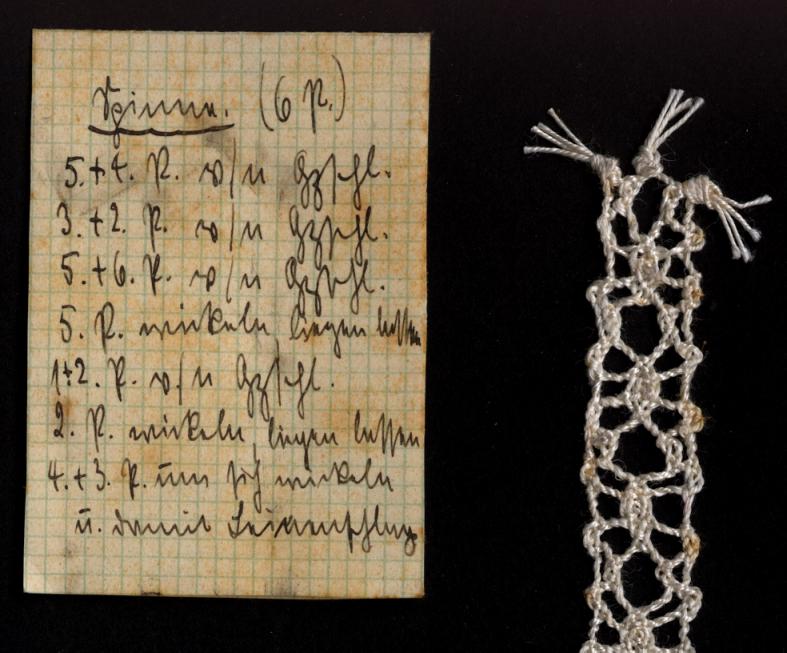 Spinne. (6 P.)
5.+4. P. v/n Gzschl.
3.+2. P. v/n Gzschl.
5.+6. P. v/n Gzschl.
5. P. wickeln, liegen lassen
1+2. P. v/n Gzschl.
2. P. wickeln, liegen lassen
4.+3. P. um sich wickeln
u. damit Leinenschlag